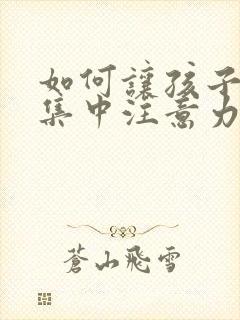 如何讓孩子
集中注意力
蒼山飛雪